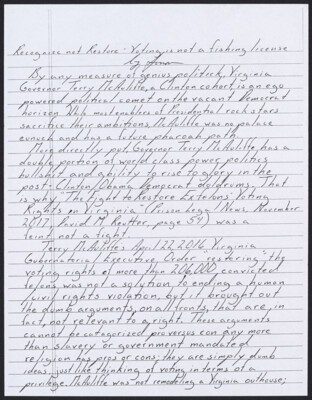 Recognise not Restore - Voting is not a fishing license
by
By any measure of genius politick, Virginia
Governor Terry McAuliffe, a Clinton cohort, is an ego
powered political comet on the vacant Democrat
horizon. While most enablers of Presidential rock stars
sacrifice their ambitions, McAuliffe was no palace
eunuch and has a future pharoah path.
More directly put, Governor Terry McAuliffe has a
double portion of world class power, politics
bullshit and ability to rise to glory in the
post-Clinton/Obama Democrat doldrums. That
is why The Fight to Restore Ex-felons Voting
Rights in Virginia (Prison Legal News, November
2017, David M. Reutter, page 54) was a
feint not a fight.
Terry McAuliffe's April 22, 2016 Virginia
Gubernatorial Executive Order restoring the
voting rights of more than 206,000 convicted
felons was not a solution to ending a human
civil rights violation, but it brought out
the dumb arguments, on all fronts, that are, in
fact, not relevant to a right. These arguments
cannot be categorized pro versus con any more
than slavery or government mandated
religion has pros or cons; they are simply dumb
ideas, just like thinking of voting in terms of a
privilege. McAuliffe was not remodeling a Virginia outhouse;